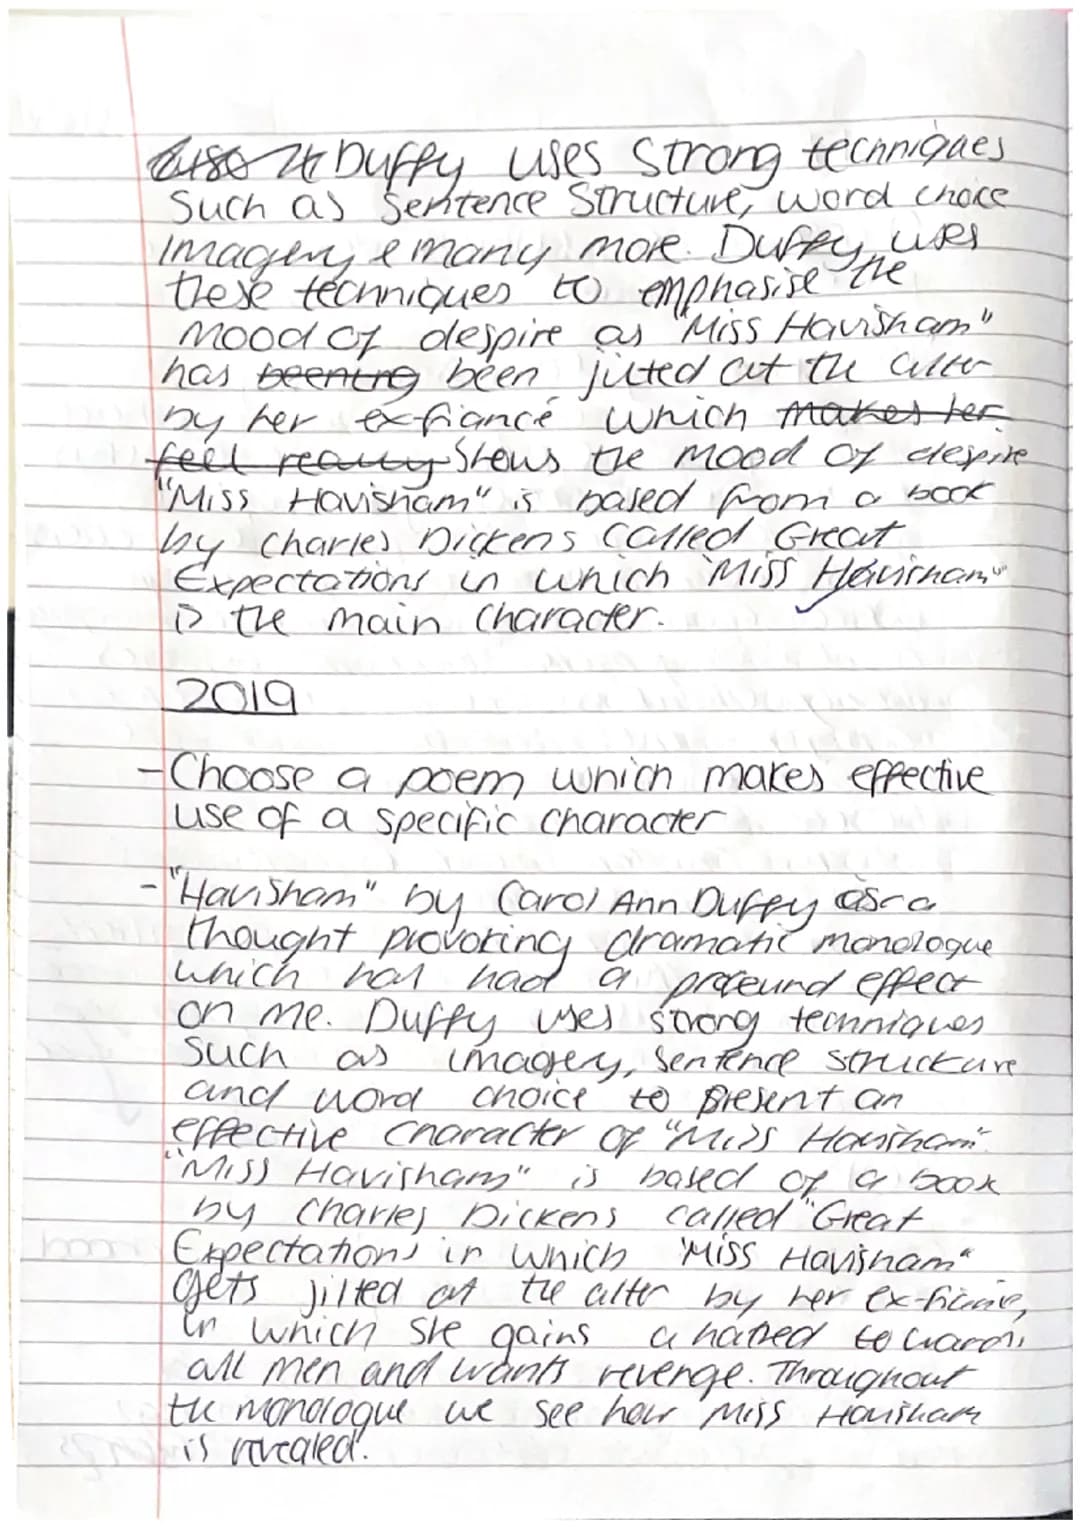 Duffy uses Strong techniques
Such as Sentence Structure, word choice
Imagery & many more. Duffy uses
these techniques to emphasise the
Mood of despire as "Miss Havisham"
has beening been jilted at the alter
by her ex-fiancé which makes her
feel really Shows the Mood of despire
"Miss Havisham" is based from a book
by Charles Dickens Called Great
Expectations in which "Miss Havisham"
is the main Character.
2019
- Choose a poem which makes effective
use of a specific character
- "Havisham" by Carol Ann Duffy is a
thought provoking dramatic monologue
which has had a profound effect
on me. Duffy uses strong techniques
Such as imagery, Sentence structure
and word choice to present an
effective Character of "Miss Havisham"
"Miss Havisham" is based of a book
by Charles Dickens called "Great
Expectations in which "Miss Havisham"
gets jilted at the alter by her ex-fiancé,
in which she gains a hatred towards
all men and wants revenge. Throughout
the monologue we see how Miss Havisham
is revealed.